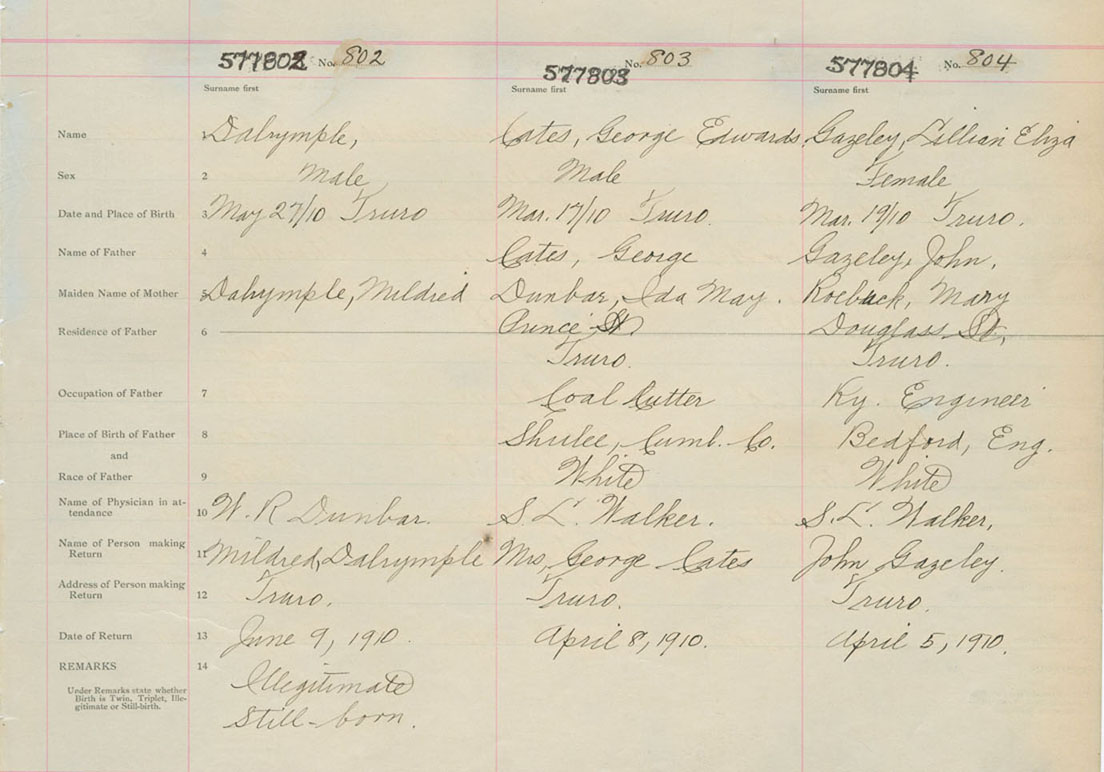 577802 No. 802 577803 No. 803 577804 No. 804
Surname first Surname first Surname first
Name 1 Dalrymple, Cates, George Edwards Gazeley, Lillian Eliza
Sex 2 Male Male Female
Date and Place of Birth 3 May 27/10 Truro Mar. 17/10 Truro. Mar. 19/10 Truro.
Name of Father 4 Cates, George Gazeley, John.
Maiden Name of Mother 5 Dalrymple, Mildred Dunbar, Ida May. Roebuck, Mary
Residence of Father 6 Prince St Douglass St,
Truro. Truro.
Occupation of Father 7 Coal Cutter Ry. Engineer
Place of Birth of Father 8 Shulee, Cumb. Co. Bedford, Eng.
and
Race of Father 9 White White
Name of Physician in at-
tendance 10 W. R Dunbar. S. L. Walker. S. L. Walker,
Name of Person making
Return 11 Mildred, Dalrymple Mrs George Cates John Gazeley.
Address of Person making
Return 12 Truro. Truro. Truro.
Date of Return 13 June 9, 1910. April 8, 1910. April 5, 1910.
REMARKS 14 Illegitimate
Under Remarks state whether
Birth is Twin, Triplet, Ille-
gitimate or Still-birth.
Still-born.